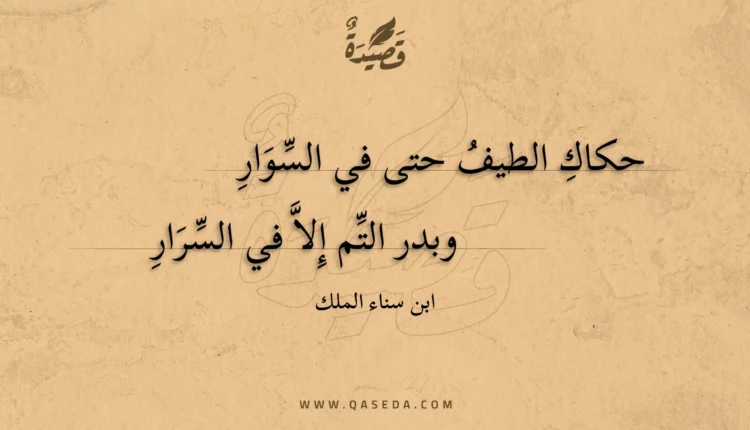 قَصِيْدَةٌ
حكاكِ الطيفُ حتى في السِّوَارِ
وبدر التِّم إِلاَّ في السِّرَارِ
ابن سناء الملك
WWW.QASEDA.COM